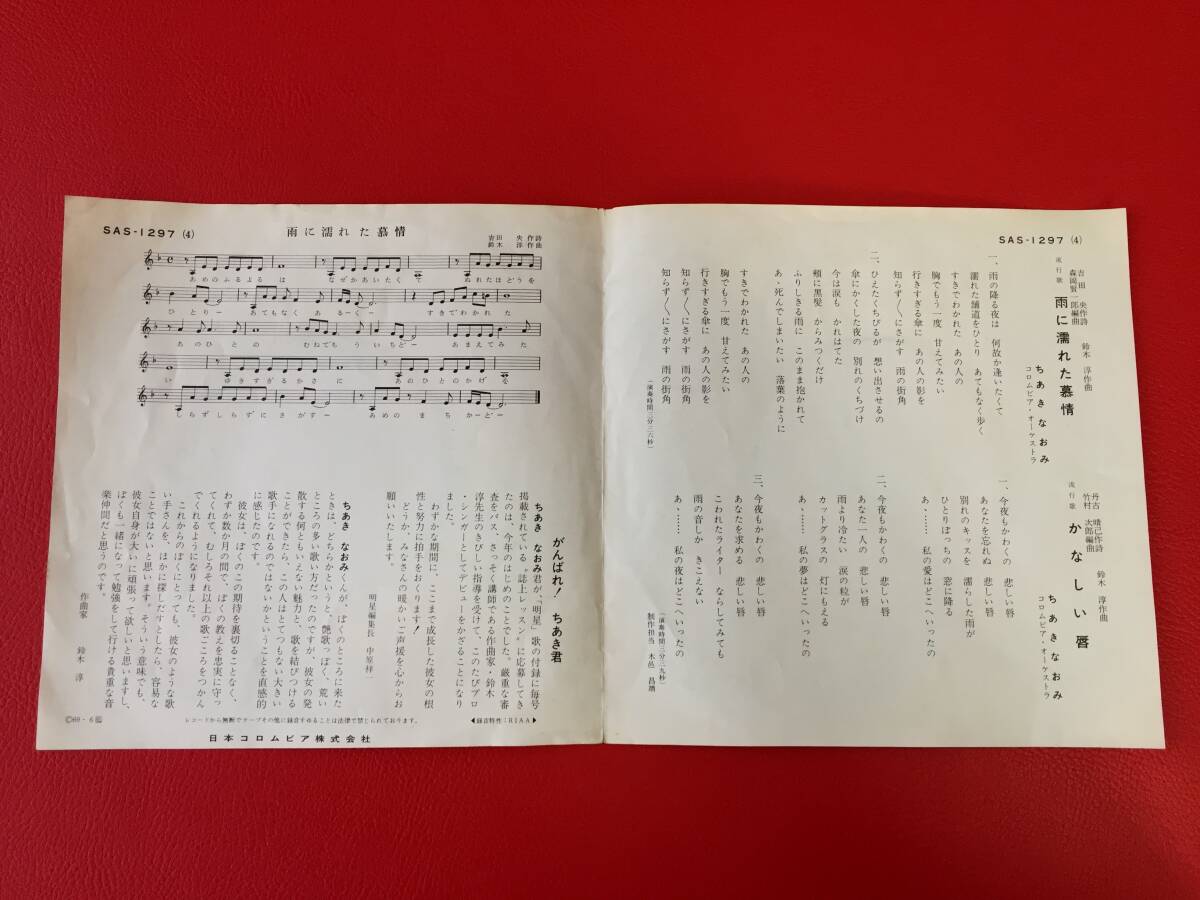 SAS-1297 (4)
流行歌
雨に濡れた慕情
吉田 央作詩
鈴木 淳作曲
森岡賢一郎編曲
ちあきなおみ
コロムビア・オーケストラ
一、雨の降る夜は 何故か逢いたくて
濡れた舗道をひとり あてもなく歩く
すきでわかれた あの人の
胸でもう一度 甘えてみたい
行きすぎる傘に あの人の影を
知らず〱にさがす 雨の街角
二、ひえたくちびるが 想い出させるの
傘にかくした夜の 別れのくちづけ
今は涙も かれはてた
頬に黒髪 からみつくだけ
ふりしきる雨に このまま抱かれて
あゝ死んでしまいたい 落葉のように
すきでわかれた あの人の
胸でもう一度 甘えてみたい
行きすぎる傘に あの人の影を
知らず〱にさがす 雨の街角
知らず〱にさがす 雨の街角
(演奏時間三分三六秒)
流行歌
かなしい唇
丹古 晴己作詩
鈴木 淳作曲
竹村 次郎編曲
ちあきなおみ
コロムビア・オーケストラ
一、今夜もかわくの 悲しい唇
あなたを忘れぬ 悲しい唇
別れのキッスを 濡らした雨が
ひとりぼっちの 窓に降る
あゝ…… 私の愛はどこへいったの
二、今夜もかわくの 悲しい唇
あなた一人の 悲しい唇
雨より冷たい 涙の粒が
カットグラスの 灯にもえる
あゝ…… 私の夢はどこへいったの
三、今夜もかわくの 悲しい唇
あなたを求める 悲しい唇
こわれたライター ならしてみても
雨の音しか きこえない
あゝ…… 私の夜はどこへいったの
(演奏時間三分三九秒)
制作担当 木邑 昌靖
SAS-1297 (4)
雨に濡れた慕情
吉田 央 作詩
鈴木 淳 作曲
あめのふるよるは なぜかあいたくて ぬれたほどうを
ひとりー あてもなく あるーくー すきでわかれた
あのひとの むねでもういちどー あまえてみた
い ゆきすぎるかさに あのひとのかげを
しらずしらずにさがすー あめのまちかーどー
がんばれ! ちあき君
ちあき なおみ君が、「明星」歌の付録に毎号
掲載されている〝誌上レッスン〟に応募してき
たのは、今年のはじめのことでした。厳重な審
査をパス、さっそく講師である作曲家・鈴木
淳先生のきびしい指導を受けて、このたびプロ
・シンガーとしてデビューをかざることになり
ました。
わずかな期間に、ここまで成長した彼女の根
性と努力に拍手をおくります!
どうか、みなさんの暖かいご声援を心からお
願いいたします。
明星編集長 中原祥一
ちあき なおみくんが、ぼくのところに来た
ときは、どちらかというと、艶歌っぽく、荒い
ところの多い歌い方だったのですが、彼女の発
散する何ともいえない魅力と、歌を結びつける
ことができたら、この人はとてつもない大きい
歌手になれるのではないかということを直感的
に感じたのです。
彼女は、ぼくのこの期待を裏切ることなく、
わずか数か月の間で、ぼくの教えを忠実に守っ
てくれて、むしろそれ以上の歌ごころをつかん
でくれるようになりました。
これからのぼくにとっても、彼女のような歌
い手さんを、ほかに探しだすとしたら、容易な
ことではないと思います。そういう意味でも、
彼女自身が大いに頑張って欲しいと思いますし、
ぼくも一緒になって勉強をして行ける貴重な音
楽仲間だと思うのです。
作曲家 鈴木 淳
Ⓒ69・6
レコードから無断でテープその他に録音することは法律で禁じられております。
◀録音特性:RIAA▶
日本コロムビア株式会社